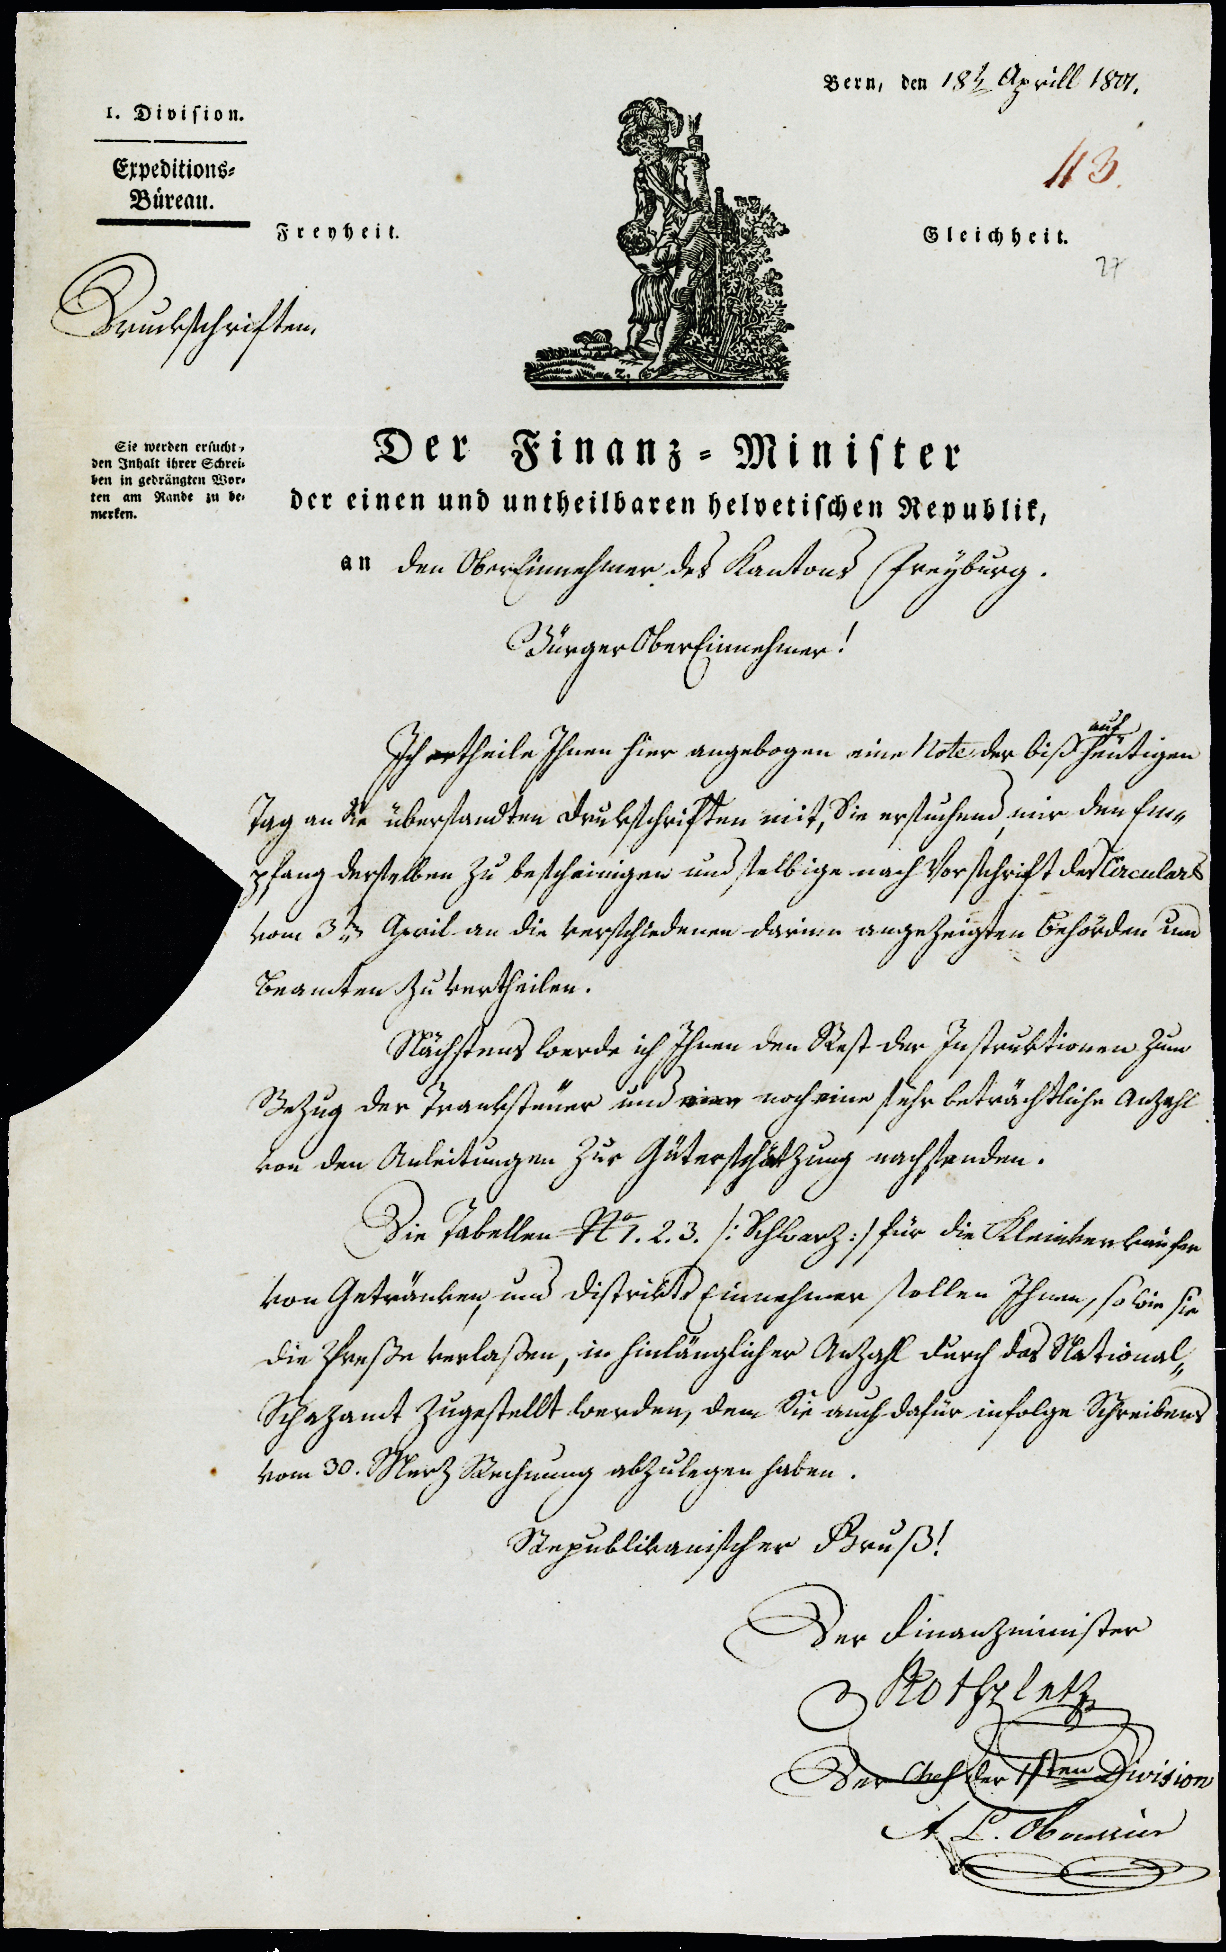 Bern, den 18t Aprill 1801.
1. Division.
Expeditions-
Büreau.
113.
Freyheit.
Gleichheit.
27
Druckschriften.
Sie werden ersucht,
den Inhalt ihrer Schrei-
ben in gedrängten Wor-
ten am Rande zu be-
merken.
Der Finanz-Minister
der einen und untheilbaren helvetischen Republik,
an den OberEinnehmer des Kantons Freyburg.
Bürger OberEinnehmer!
auf
Ich ertheile Ihnen hier angebogen eine Note der biß heutigen
Tag an Sie übersandten Druckschriften mit, Sie ersuchend, mir den Em„
pfang derselben zu bescheinigen und selbige nach Vorschrift des Circulars
vom 3ten April an die verschiedenen darinn angezeigten Behörden und
Beamten zu vertheilen.
Nächstens werde ich Ihnen den Rest der Instruktionen zum
Bezug der Tranksteuer und noch eine sehr beträchtliche Anzahl
von den Anleitungen zur Güterschätzung nachsenden.
Die Tabellen No 1. 2. 3. /: Schwarz :/ für die Kleinverkäufer
von Getränken, und Distrikts Einnehmer sollen Ihnen, so wie sie
die Preße verlaßen, in hinlänglicher Anzahl durch das National„
Schazamt zugestellt werden, dem Sie auch dafür infolge Schreibens
vom 30. Merz Rechnung abzulegen haben.
Republikanischer Gruß!
Der Finanzminister
Rothpletz
Der Chef der 1sten Division
A. L. Oboussier